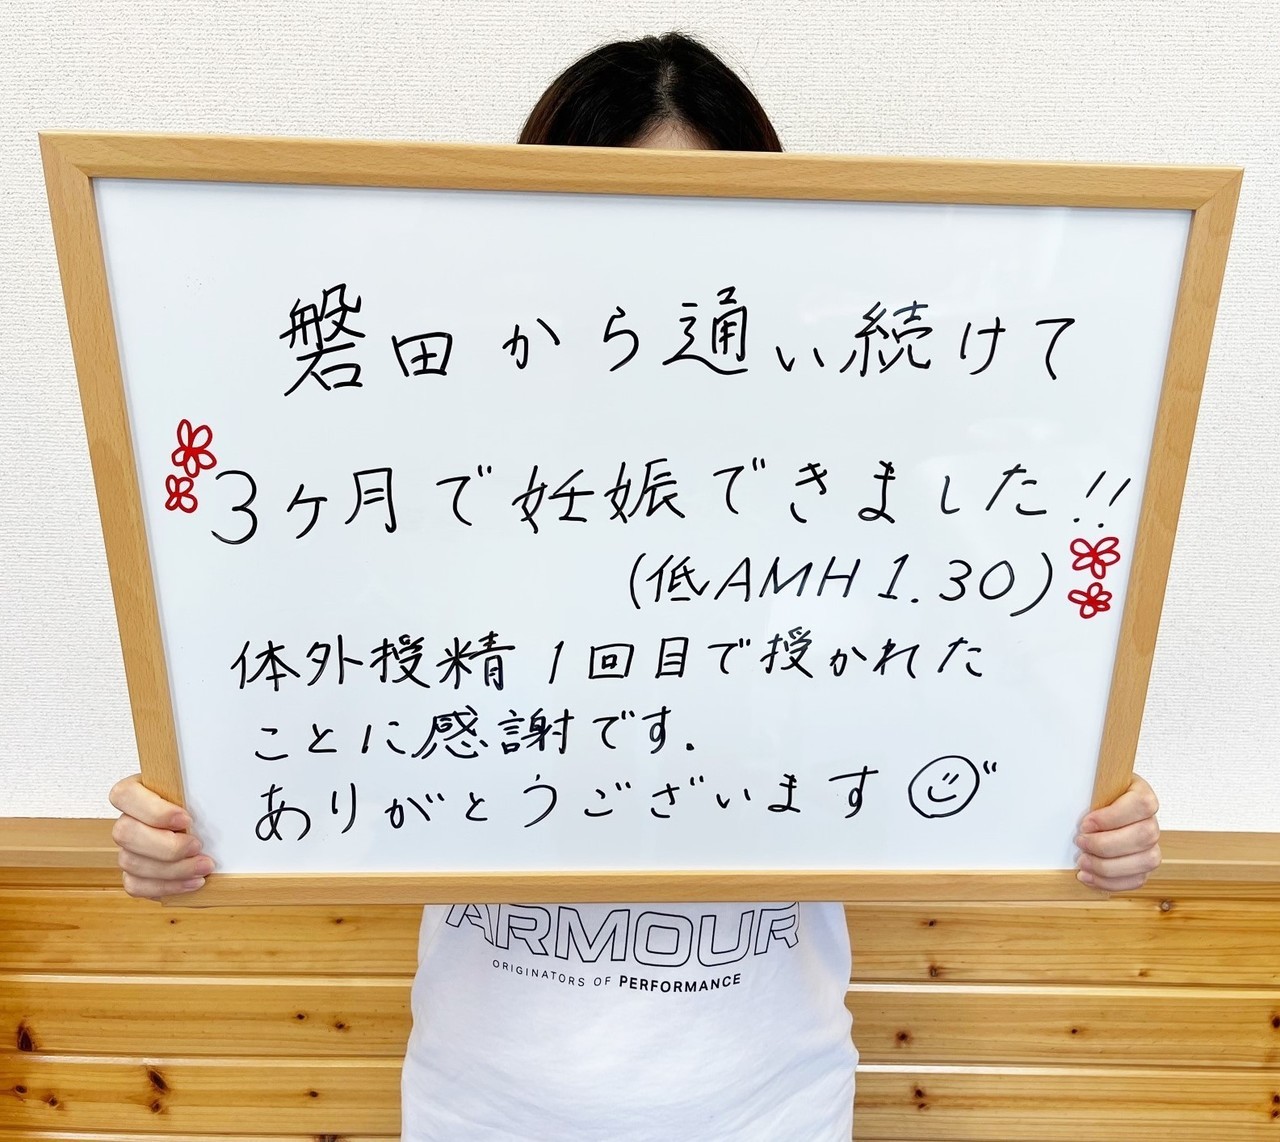 磐田から通い続けて
3ヶ月で妊娠できました!!
(低AMH 1.30)
体外授精1回目で授かれた
ことに感謝です.
ありがとうございます
ARMOUR
ORIGINATORS OF PERFORMANCE